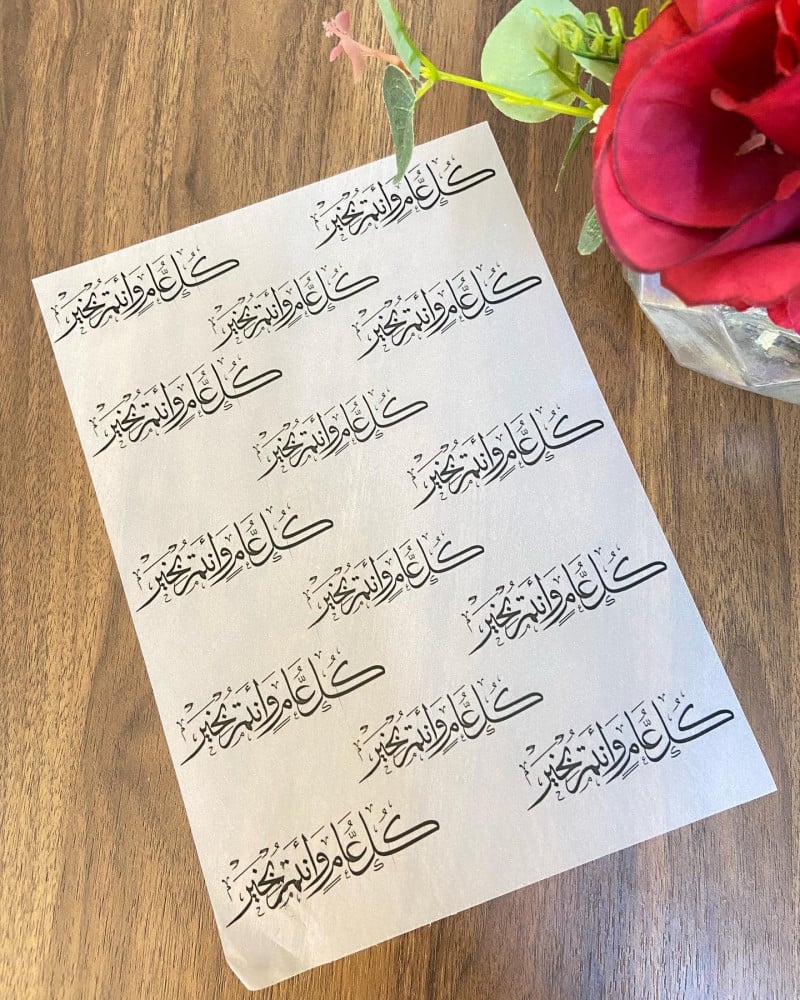 كل عام وأنتم بخير
كل عام وأنتم بخير
كل عام وأنتم بخير
كل عام وأنتم بخير
كل عام وأنتم بخير
كل عام وأنتم بخير
كل عام وأنتم بخير
كل عام وأنتم بخير
كل عام وأنتم بخير
كل عام وأنتم بخير
كل عام وأنتم بخير
كل عام وأنتم بخير
كل عام وأنتم بخير
كل عام وأنتم بخير